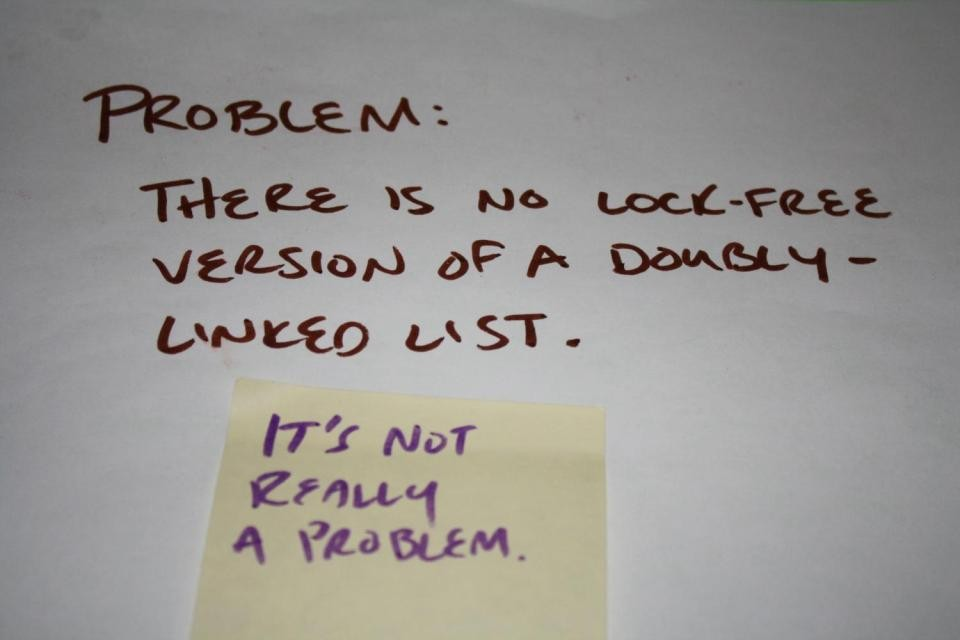 PROBLEM:
THERE IS NO LOCK-FREE
VERSION OF A DOUBLY-
LINKED LIST.
IT'S NOT
REALLY
A PROBLEM.